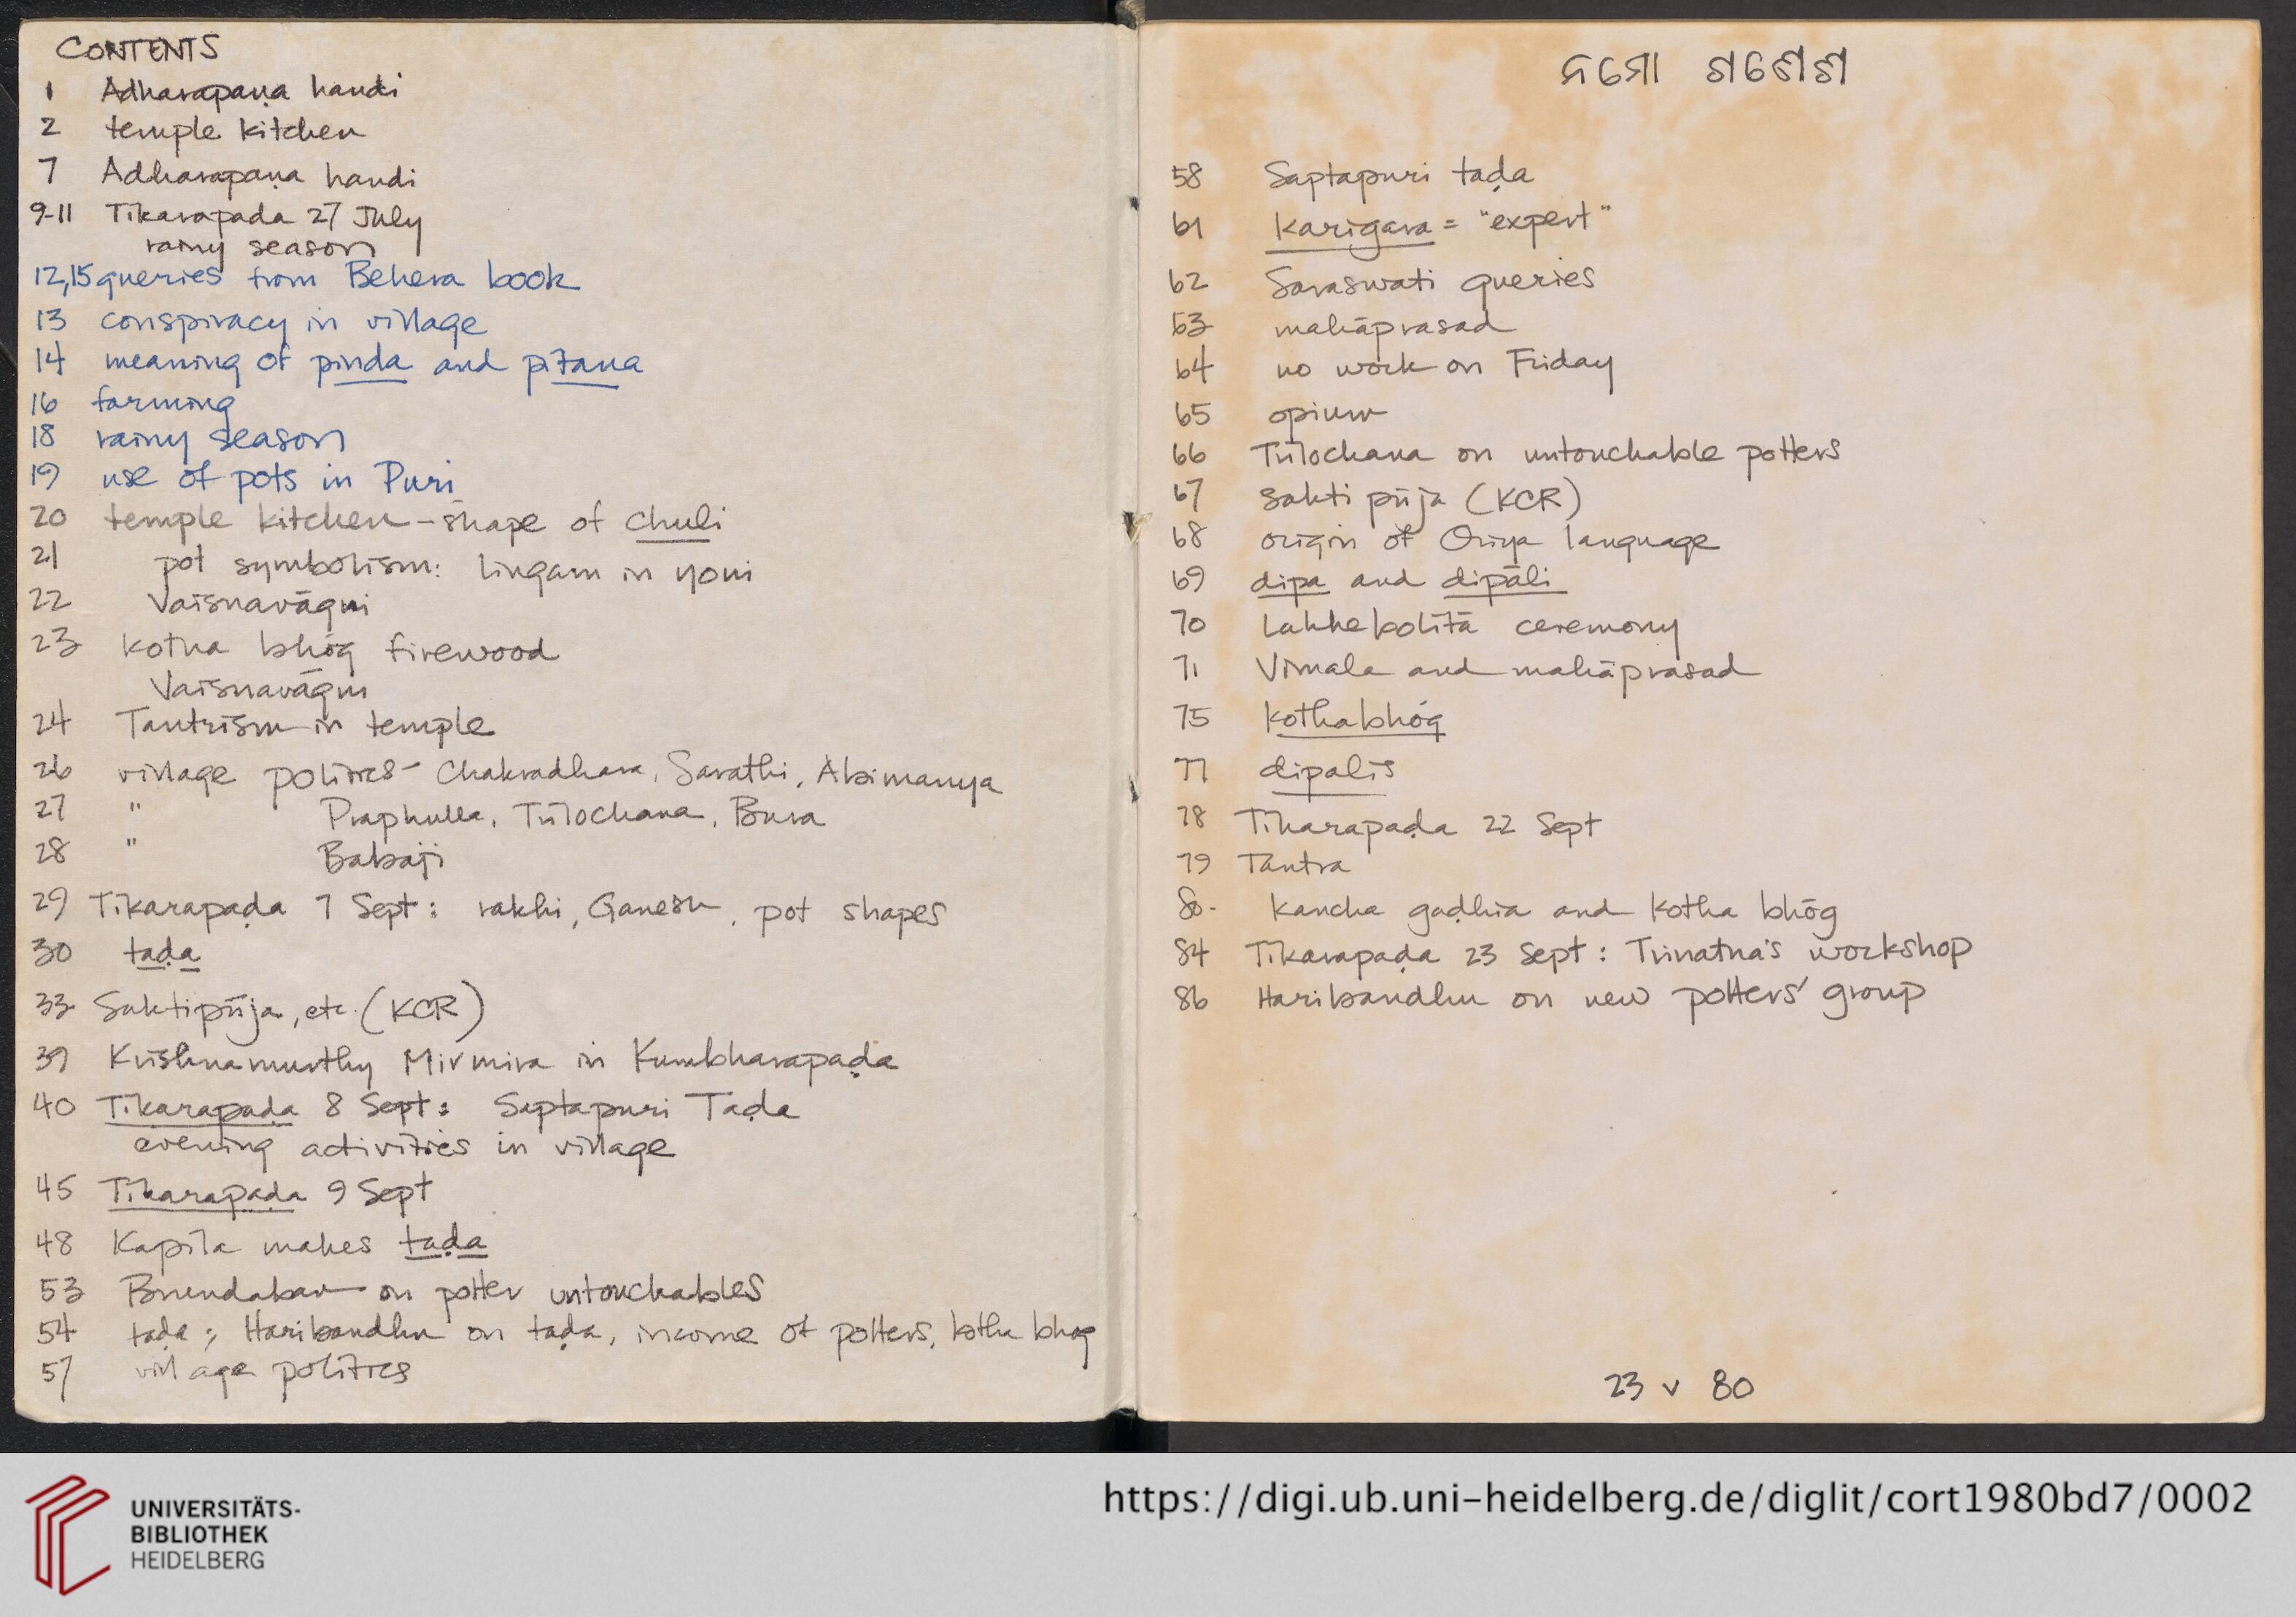 CONTENTS
1 Adharapaṇa handi
2 temple kitchen
7 Adharapaṇa handi
9-11 Tikarapada 27 July
rainy season
12,15 queries from Behera book
13 conspiracy in village
14 meaning of pinda and pitana
16 farming
18 rainy season
19 use of pots in Puri
20 temple kitchen - shape of chuli
21 pot symbolism: lingam in yoni
22 Vaisnavāgni
23 kotha bhōg firewood
Vaisnavāgni
24 Tantrism in temple
26 village politics - Chakradhara, Sarathi, Abimanya
27 " Praphulla, Trilochana, Bura
28 " Babaji
29 Tikarapaḍa 7 Sept: rakhi, Ganesh, pot shapes
30 taḍa
33 Saktipūja, etc. (KCR)
39 Krishnamurthy Mirmira in Kumbharapaḍa
40 Tikarapaḍa 8 Sept: Saptapuri Taḍa
evening activities in village
45 Tikarapaḍa 9 Sept
48 Kapila makes taḍa
53 Brundaban on potter untouchables
54 taḍa; Haribandhu on taḍa, income of potters, kotha bhog
57 village politics
ନମୋ ଗଣେଶ
58 Saptapuri taḍa
61 Karigara = "expert"
62 Saraswati queries
63 mahāprasad
64 no work on Friday
65 opium
66 Trilochana on untouchable potters
67 Sakti pūja (KCR)
68 origin of Oriya language
69 dipa and dipāli
70 Lakhebolitā ceremony
71 Vimala and mahāprasad
75 Kothabhōg
77 dipalis
78 Tikarapaḍa 22 Sept
79 Tantra
80. Kancha gaḍhia and Kotha bhōg
84 Tikarapaḍa 23 Sept: Trinatha's workshop
86 Haribandhu on new potters' group
23 v 80
UNIVERSITÄTS-
BIBLIOTHEK
HEIDELBERG
https://digi.ub.uni-heidelberg.de/diglit/cort1980bd7/0002